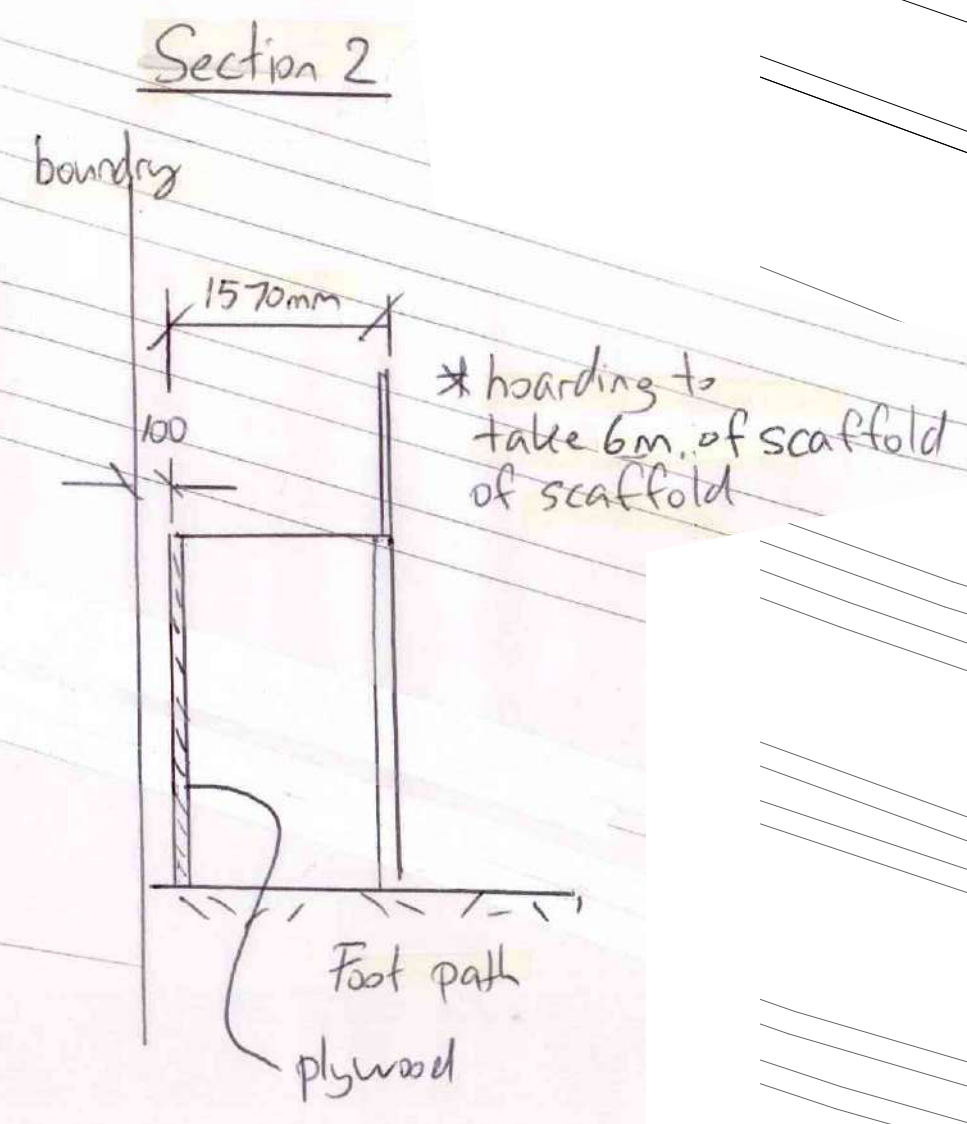 Section 2
boundry
1570mm
100
* hoarding to
take 6m. of scaffold
of scaffold
Foot path
plywood